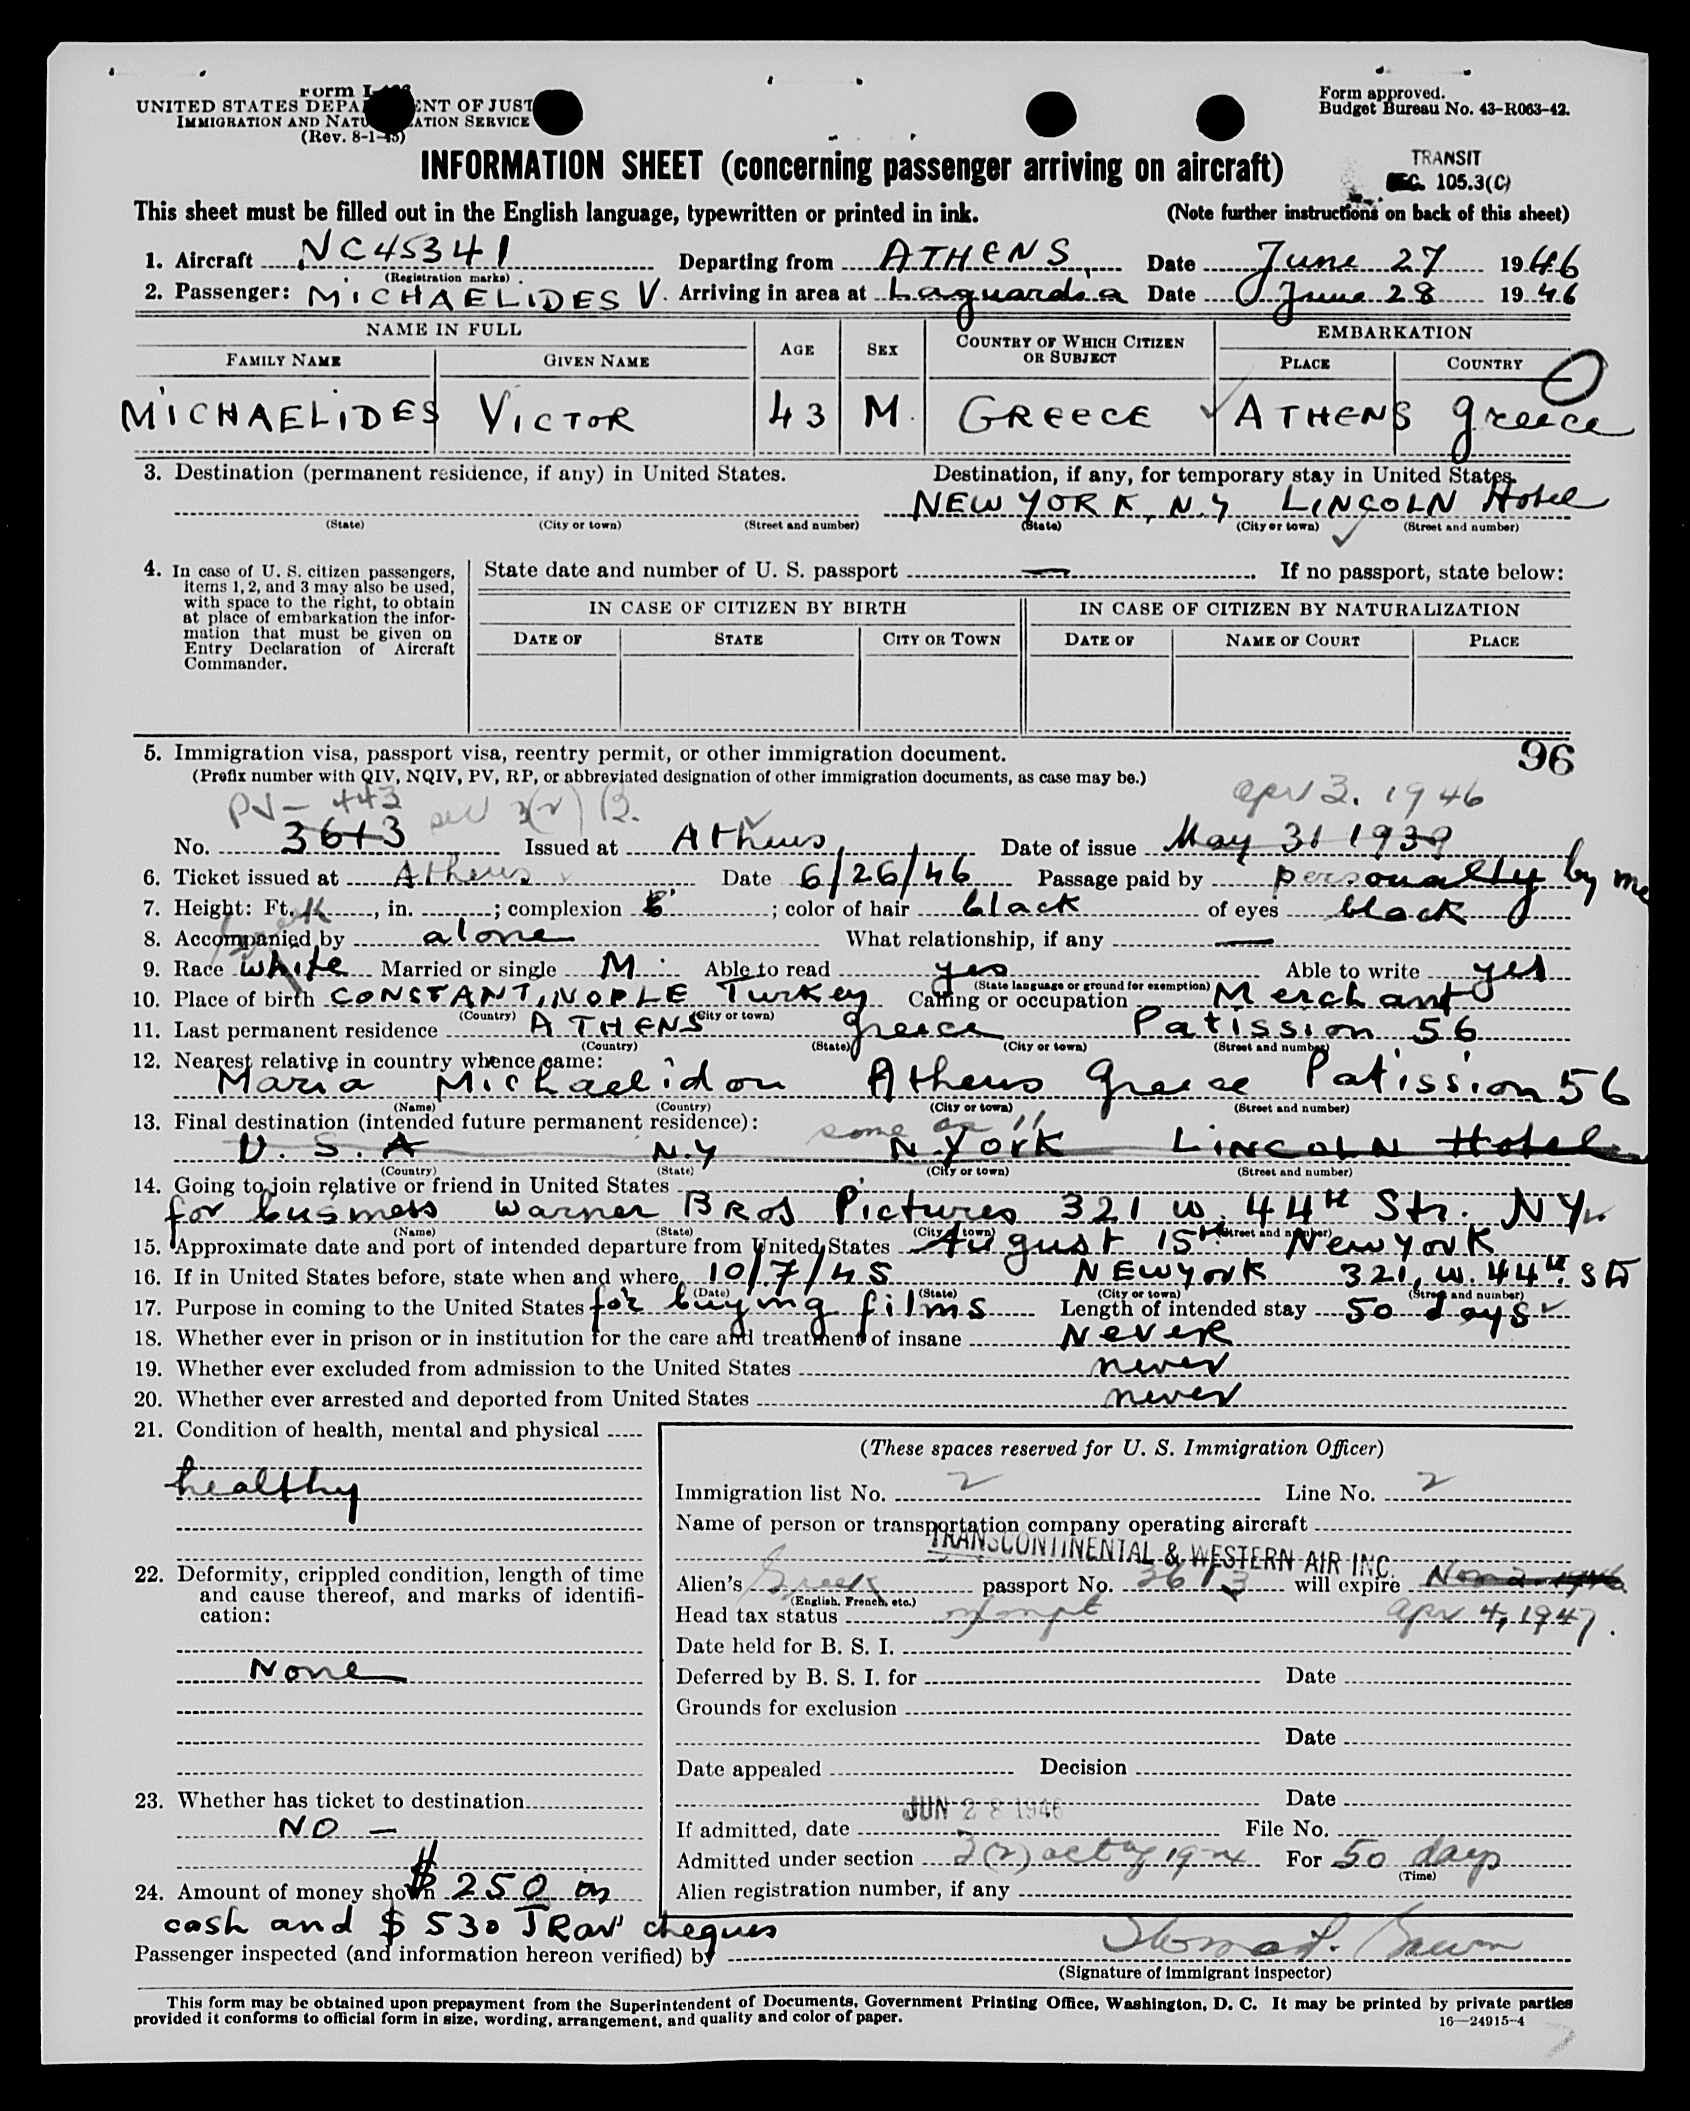 Form I-466
UNITED STATES DEPA NT OF JUST
IMMIGRATION AND NATU ATION SERVICE
(Rev. 8-1-45)
Form approved.
Budget Bureau No. 43-R063-42.
INFORMATION SHEET (concerning passenger arriving on aircraft)
TRANSIT
SEC. 105.3(C)
This sheet must be filled out in the English language, typewritten or printed in ink. (Note further instructions on back of this sheet)
1. Aircraft NC45341 Departing from ATHENS, Date June 27 1946
(Registration marks)
2. Passenger: MICHAELIDES V. Arriving in area at Laguardia Date June 28 1946
NAME IN FULL AGE SEX COUNTRY OF WHICH CITIZEN OR SUBJECT EMBARKATION
FAMILY NAME GIVEN NAME PLACE COUNTRY
MICHAELIDES VICTOR 43 M. GREECE ATHENS Greece
3. Destination (permanent residence, if any) in United States. Destination, if any, for temporary stay in United States.
NEW YORK, N.Y LINCOLN Hotel
(State) (City or town) (Street and number) (State) (City or town) (Street and number)
4. In case of U. S. citizen passengers, items 1, 2, and 3 may also be used, with space to the right, to obtain at place of embarkation the information that must be given on Entry Declaration of Aircraft Commander.
State date and number of U. S. passport — . If no passport, state below:
IN CASE OF CITIZEN BY BIRTH IN CASE OF CITIZEN BY NATURALIZATION
DATE OF STATE CITY OR TOWN DATE OF NAME OF COURT PLACE
5. Immigration visa, passport visa, reentry permit, or other immigration document. 96
(Prefix number with QIV, NQIV, PV, RP, or abbreviated designation of other immigration documents, as case may be.)
PV - 443 sec 3(2) B. apr 3. 1946
No. 3613 Issued at Athens Date of issue May 31 1939
6. Ticket issued at Athens Date 6/26/46 Passage paid by personally by me
7. Height: Ft. , in. ; complexion ; color of hair black of eyes black
8. Accompanied by alone What relationship, if any —
Greek
9. Race White Married or single M Able to read yes Able to write yes
(State language or ground for exemption)
10. Place of birth CONSTANTINOPLE Turkey Calling or occupation Merchant
(Country) (City or town)
11. Last permanent residence ATHENS Greece Patission 56
(Country) (State) (City or town) (Street and number)
12. Nearest relative in country whence came:
Maria Michaelidou Athens Greece Patission 56
(Name) (Country) (City or town) (Street and number)
13. Final destination (intended future permanent residence):
same as 11
U.S.A N.Y N.York LINCOLN Hotel
(Country) (State) (City or town) (Street and number)
14. Going to join relative or friend in United States
for business Warner BROS Pictures 321 W. 44th Str. NY
(Name) (State) (City or town) (Street and number)
15. Approximate date and port of intended departure from United States August 15th New York
16. If in United States before, state when and where 10/7/45 NEwyork 321, W. 44th. Str
(Date) (State) (City or town) (Street and number)
17. Purpose in coming to the United States for buying films Length of intended stay 50 days
18. Whether ever in prison or in institution for the care and treatment of insane Never
19. Whether ever excluded from admission to the United States never
20. Whether ever arrested and deported from United States never
21. Condition of health, mental and physical
healthy
22. Deformity, crippled condition, length of time and cause thereof, and marks of identification:
None
23. Whether has ticket to destination
NO —
24. Amount of money shown $ 250 in
cash and $ 530 TRav' cheques
(These spaces reserved for U. S. Immigration Officer)
Immigration list No. 2 Line No. 2
Name of person or transportation company operating aircraft
TRANSCONTINENTAL & WESTERN AIR INC.
Alien's Greek passport No. 3613 will expire
(English, French, etc.)
Head tax status exempt apr 4, 1947.
Date held for B. S. I.
Deferred by B. S. I. for Date
Grounds for exclusion
Date
Date appealed Decision
Date
JUN 28 1946
If admitted, date File No.
Admitted under section 3(2) act of 1924 For 50 days
(Time)
Alien registration number, if any
Passenger inspected (and information hereon verified) by
(Signature of immigrant inspector)
This form may be obtained upon prepayment from the Superintendent of Documents, Government Printing Office, Washington, D. C. It may be printed by private parties
provided it conforms to official form in size, wording, arrangement, and quality and color of paper.
16—24915-4